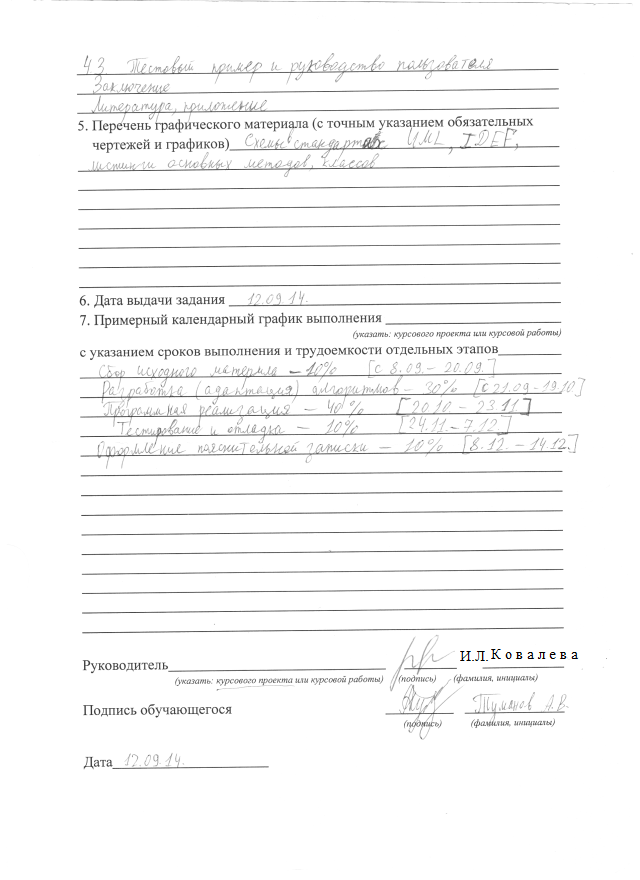 4.3 Тестовый пример и руководство пользователя
Заключение
Литература, приложение
5. Перечень графического материала (с точным указанием обязательных
чертежей и графиков) Схемы в стандартах UML, IDEF,
листинги основных методов, классов
6. Дата выдачи задания 12.09.14.
7. Примерный календарный график выполнения
(указать: курсового проекта или курсовой работы)
с указанием сроков выполнения и трудоемкости отдельных этапов
Сбор исходного материала – 10% [с 8.09. – 20.09.]
Разработка (адаптация) алгоритмов – 30% [с 21.09 – 19.10]
Программная реализация – 40% [20.10 – 23.11]
Тестирование и отладка – 10% [24.11 – 7.12]
Оформление пояснительной записки – 10% [8.12. – 14.12.]
Руководитель И.Л.Ковалева
(указать: курсового проекта или курсовой работы) (подпись) (фамилия, инициалы)
Подпись обучающегося Туманов А.В.
(подпись) (фамилия, инициалы)
Дата 12.09.14.